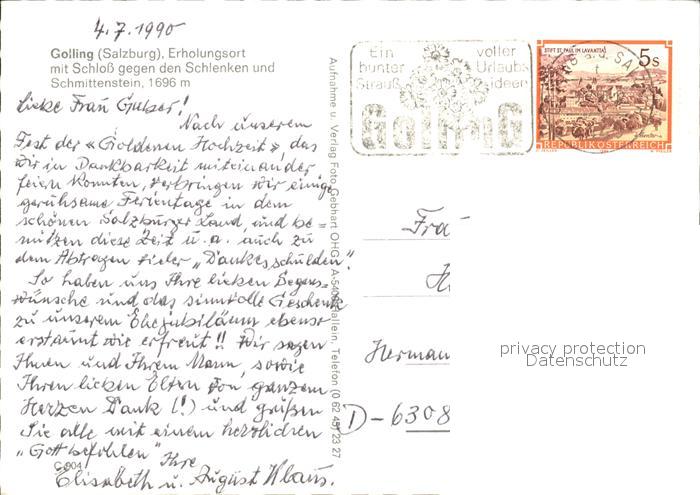 4.7.1990
Golling (Salzburg), Erholungsort
mit Schloß gegen den Schlenken und
Schmittenstein, 1696 m
Liebe Frau Gulzer!
Nach unserem
Fest der «Goldenen Hochzeit», das
wir in Dankbarkeit miteinander
feiern konnten, verbringen wir einige
geruhsame Ferientage in dem
schönen Salzburger Land, und be-
nützen diese Zeit u. a. auch zu
dem Abtragen vieler „Dankesschulden".
So haben uns Ihre lieben Segens-
wünsche und das sinnvolle Geschenk
zu unserem Ehejubiläum ebenso
erstaunt wie erfreut!! Wir sagen
Ihnen und Ihrem Mann, sowie
Ihren lieben Eltern von ganzem
Herzen Dank (!) und grüßen
Sie alle mit einem herzlichen
„Gott befohlen" Ihre
C 904
Elisabeth u. August Klaus.
Aufnahme u. Verlag Foto Gebhart OHG, A-5400 Hallein, Telefon (0 62 45) 23 27
Ein bunter Strauß
voller Urlaubs ideen
Golling
STIFT ST. PAUL IM LAVANTTAL
5 S
REPUBLIK ÖSTERREICH
Fra
H
Herman
D-6308
privacy protection
Datenschutz